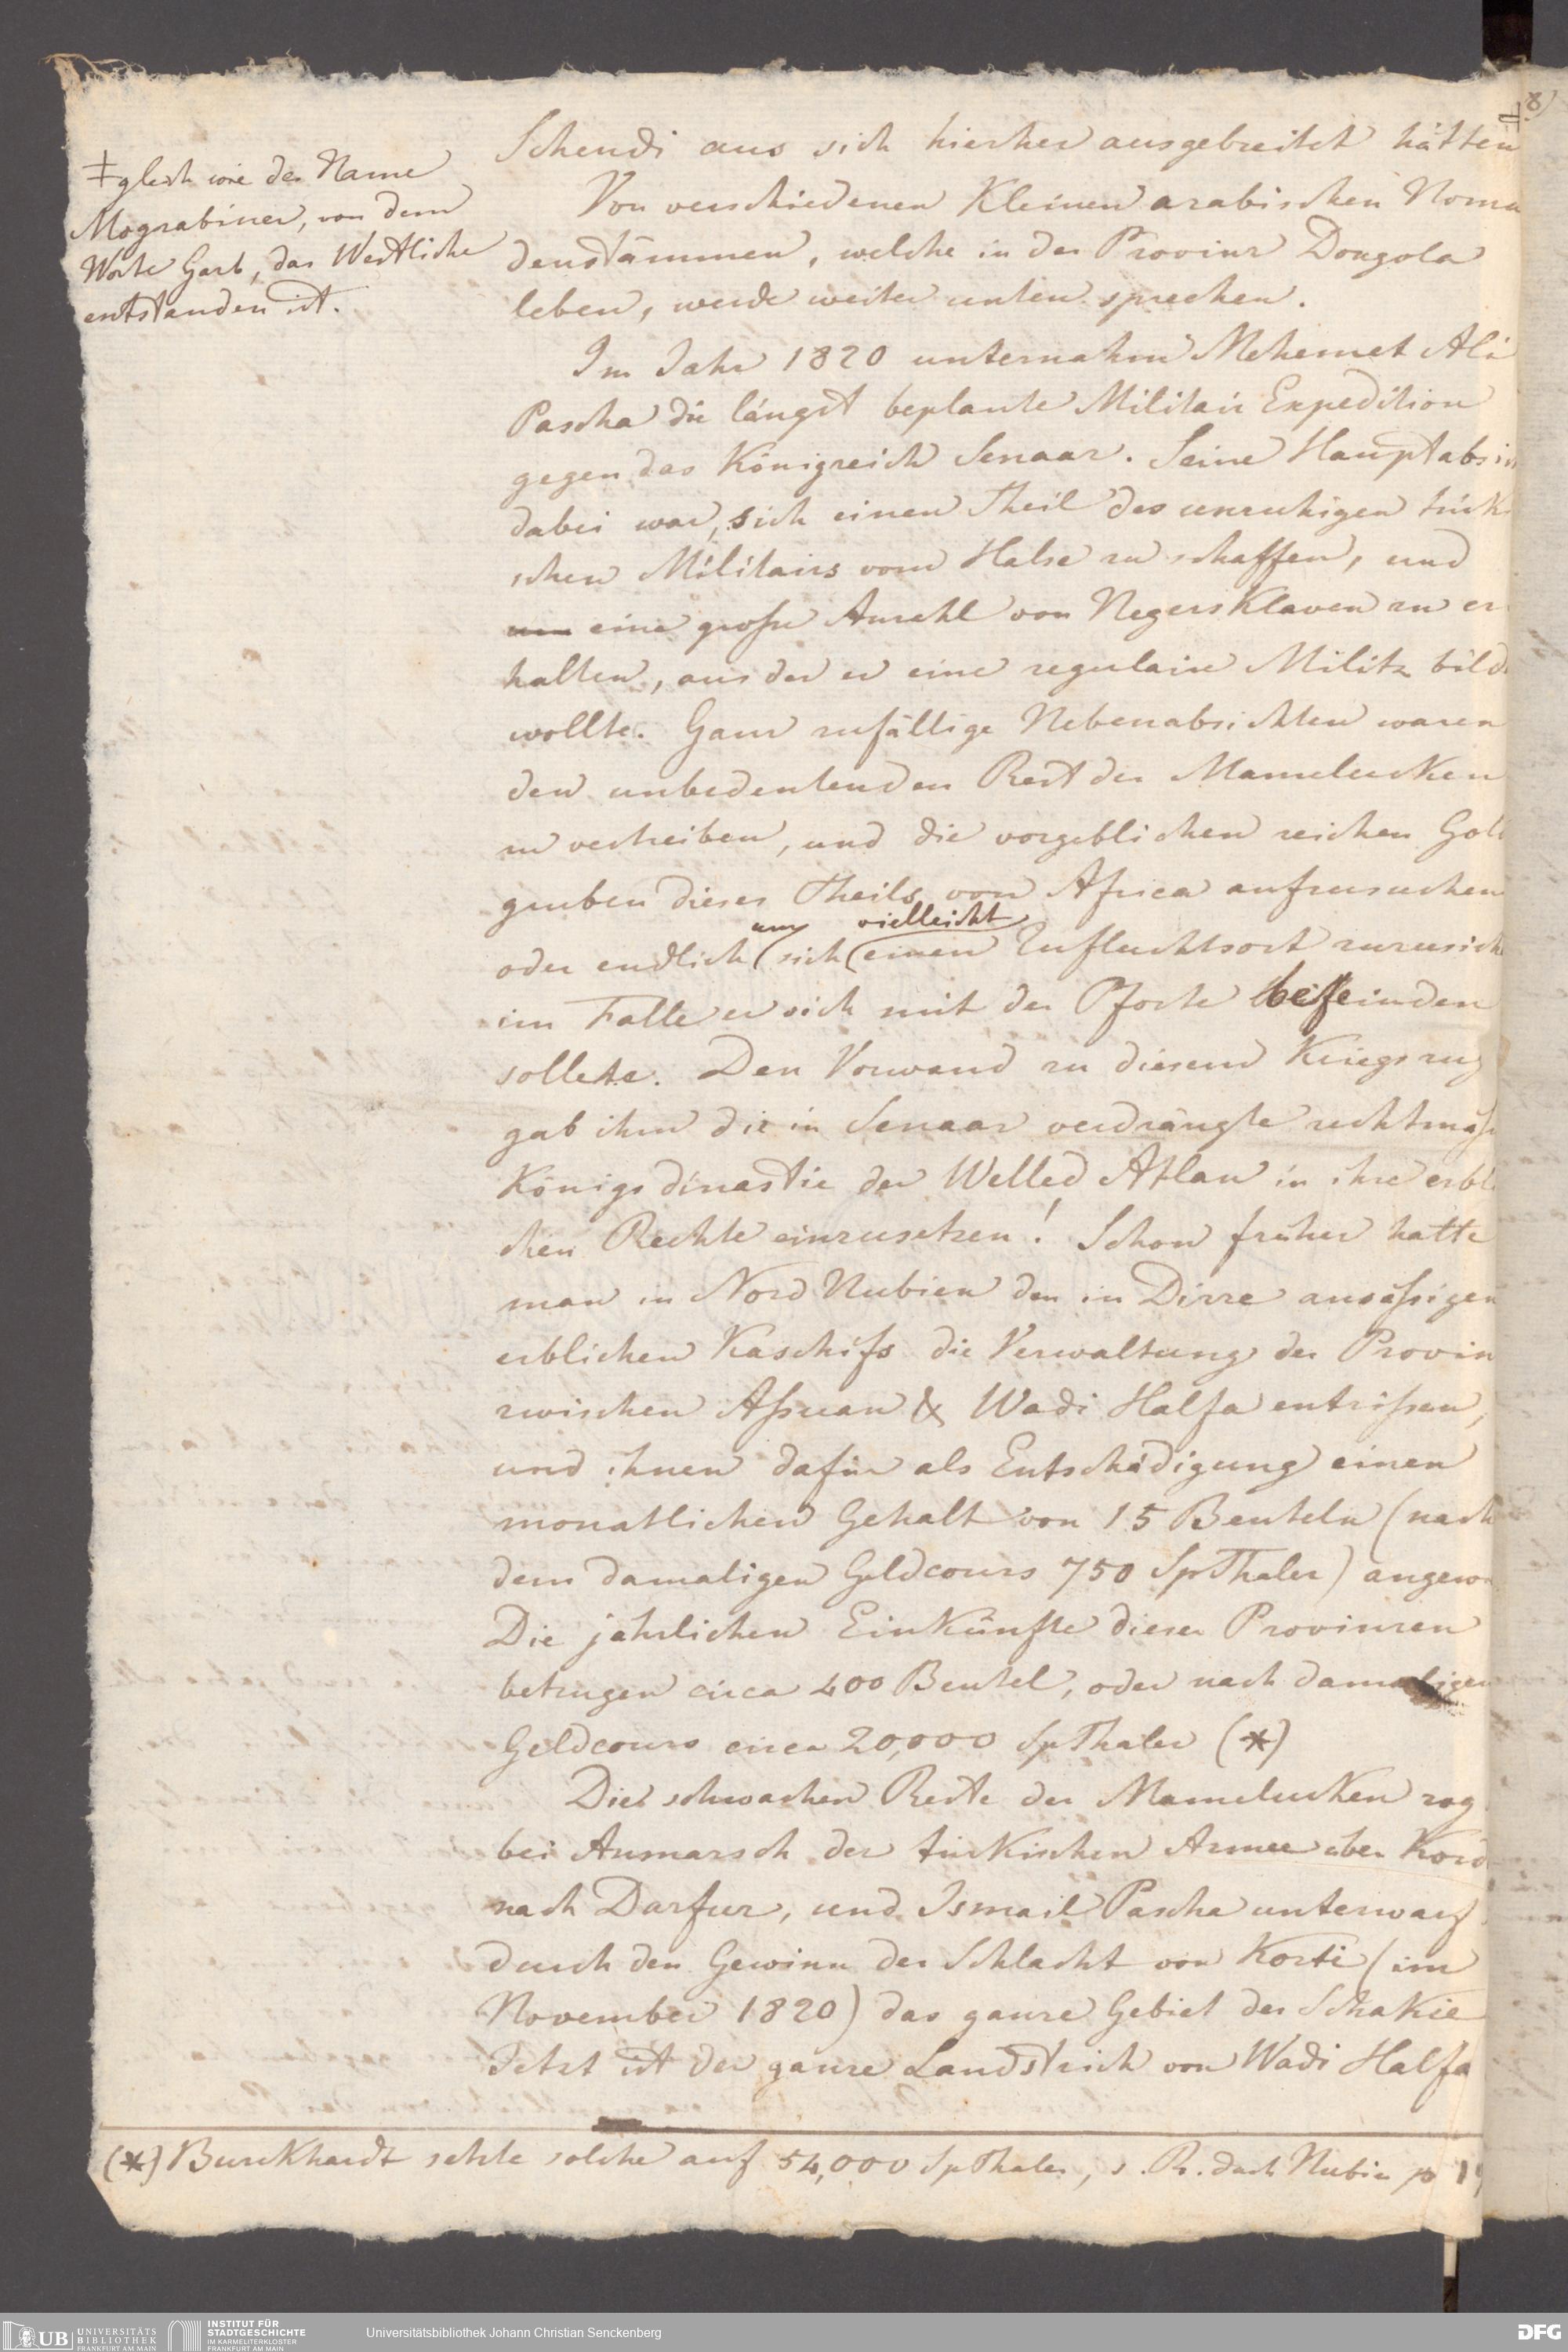 8)
Schendi aus sich hierher ausgebreitet hätten ‡
‡ gleich wie der Name
Mograbiner, von dem
Worte Garb, das Westliche
entstanden ist.
Von verschiedenen Kleinen arabischen Noma
denstämmen, welche in der Provinz Dongola
leben, werde weiter unten sprechen.
Im Jahr 1820 unternahm Mehemet Ali
Pascha die längst beplante Militair Expedition
gegen das Königreich Senaar. Seine Hauptabsi
dabei war, sich einen Theil des unruhigen türki
schen Militairs vom Halse zu schaffen, und
um eine große Anzahl von NegersKlaven zu er
halten, aus der er eine regulaire Militz bild
wollte. Ganz zufällige Nebenabsichten waren
den unbedeutenden Rest der Mamelucken
zu vertreiben, und die vorgeblichen reichen Gold
gruben dieses Theils von Africa aufzusuchen
oder endlich um sich vielleicht einen Zufluchtsort zuzusich
im Falle er sich mit der Pforte befeinden
sollete. Den Vorwand zu diesem Kriegszug
gab ihm die in Senaar verdrängte rechtmäß
Königsdinastie der Welled Atlan in ihre erbli
chen Rechte einzusetzen! Schon früher hatte
man in Nord Nubien den in Dirre ansäßigen
erblichen Kaschifs die Verwaltung der Provin
zwischen Aßuan & Wadi Halfa entrißen,
und ihnen dafür als Entschädigung einen
monatlichen Gehalt von 15 Beuteln (nach
dem damaligen Geldcours 750 SpThaler) angewi
Die jährlichen EinKünfte dieser Provinzen
betrugen circa 400 Beutel, oder nach damaligen
Geldcours circa 20,000 SpThaler (*)
Die schwachen Reste der Mamelucken zog
bei Anmarsch der türKischen Armee über Kord
nach Darfur, und Ismail Pascha unterwarf
durch den Gewinn der Schlacht von Korti (im
November 1820) das ganze Gebiet der SchaKie
Jetzt ist der ganze Landstrich von Wadi Halfa
(*) Burckhardt setzte solche auf 54,000 SpThaler, s. R. durch Nubien p 1
UB UNIVERSITÄTS
BIBLIOTHEK
FRANKFURT AM MAIN
INSTITUT FÜR
STADTGESCHICHTE
IM KARMELITERKLOSTER
FRANKFURT AM MAIN
Universitätsbibliothek Johann Christian Senckenberg
DFG